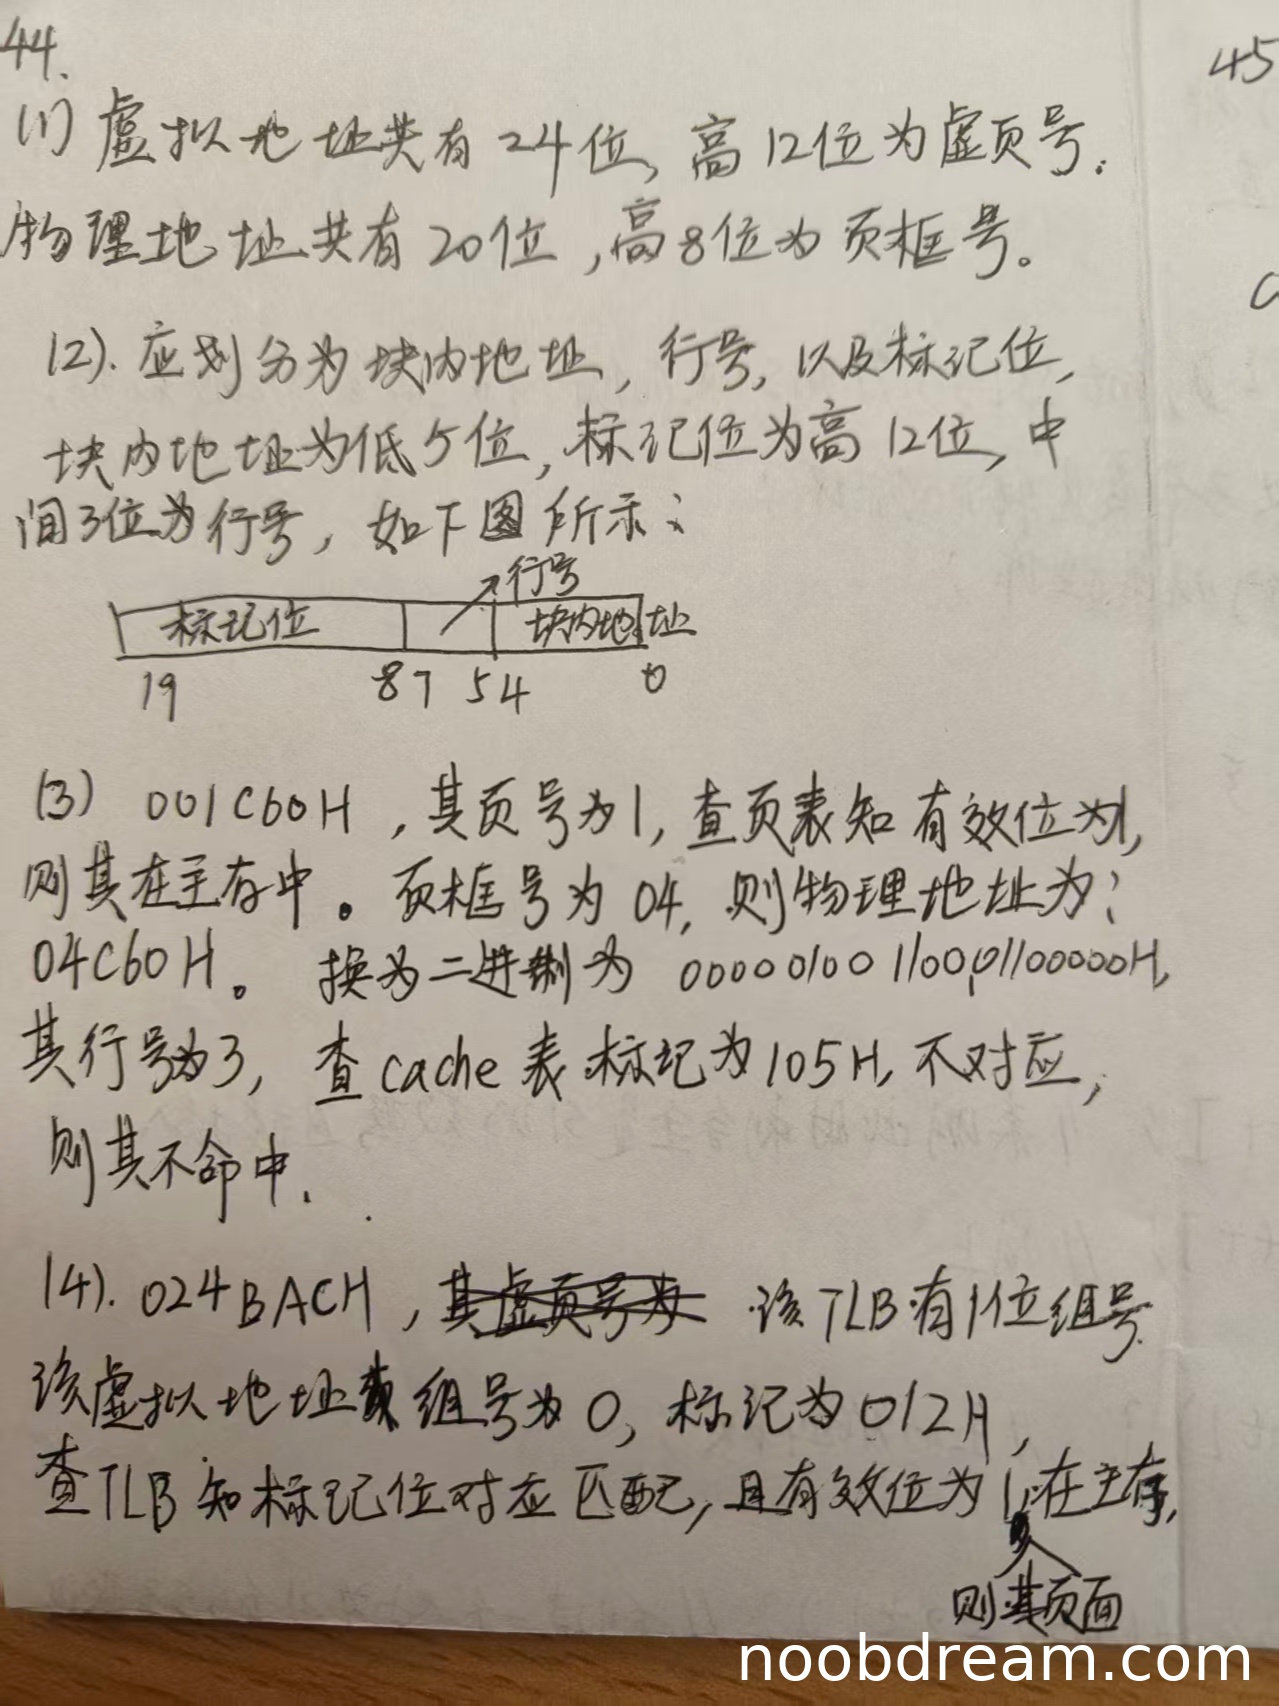 44.
45
(1) 虚拟地址共有24位, 高12位为虚页号.
物理地址共有20位, 高8位为页框号。
(2). 应划分为块内地址, 行号, 以及标记位,
块内地址为低5位, 标记位为高12位, 中
间3位为行号, 如下图所示:
行号
标记位 块内地址
19 8 7 5 4 0
(3) 001C60H, 其页号为1, 查页表知有效位为1,
则其在主存中。页框号为04, 则物理地址为:
04C60H。换为二进制为 00000100110001100000H,
其行号为3, 查cache表标记为105H, 不对应,
则其不命中.
(4). 024BACH, 该TLB有1位组号
该虚拟地址组号为0, 标记为012H,
查TLB知标记位对应匹配, 且有效位为1, 在主存,
则其页面
noobdream.com